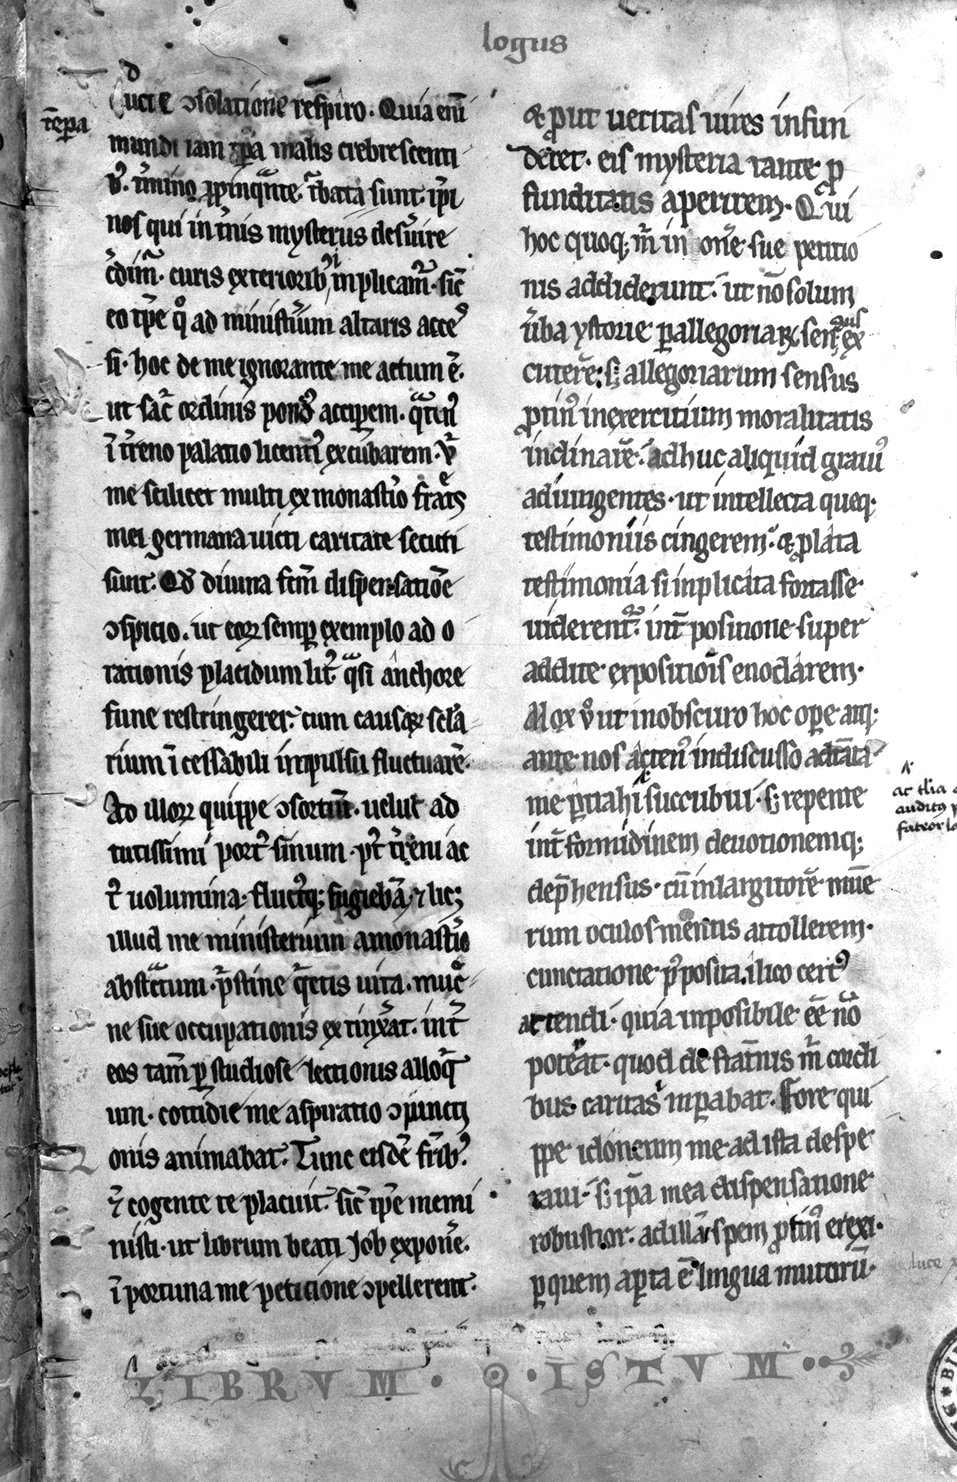 logus
ducte ɔsolatione resp̄iro. Quia eni᷒
mundi iam tēpora malis crebrescenti
bꝰ. t̄mino ꝓpīnqᵃnte. t᷒bata sunt. ip̄i
nos qui in t̄nis mysteriis deſuire
c̄dim᷒. curis exteriorib᷒ inplicam᷒. sic̄
eo tp̄e qͦ ad ministīum altaris acceſ
ſi. hoc de me ignorante me actum ē.
ut sac̄ ordinis pond᷒ accip̄em. qᵃtin᷒
ī t̄reno palatio licenti᷒ excubarem. v̄
me scilicet multi ex monast̄io frat̄s
mei germana uicti caritate secuti
sunt. Qd̄ diuina fc̄m dispensatiōe
ɔspicio. ut eoꝝ semꝑ exemplo ad o
rationis placidum lit᷒ qᵃsi anchore
fune restringerer. cum causaꝝ scl̄a
rium ī cessabili impulsu fluctuarē.
Ad illoꝝ quippe ɔsortiū. uelut ad
tutissimi port᷒ sinum. p᷒t t̄reni ac
t᷒ uolumina. fluct᷒q; fugiebā. ⁊ lic;
illud me ministerium amonast̄io
abstᵃctum. p̄stine q̄etis uita. muc̄o
ne sue occupationis extinx̄at. int̄
eos tam̄ ꝑ studiose lectionis alloq̄
um. cottidie me aspiratio ɔpuncti
onis animabat. Tunc eisdē fr̄ib᷒.
⁊ cogente te placuit. sic̄ ip̄e memi
nisti. ut librum beati Job exponē.
ī portuna me peticione ɔpellerent.
⁊ ꝓut ueritas uires infun
deret. eis mysteria tante ꝓ
funditatis aperirem. Qui
hoc quoq; m̄ in onē sue petitio
nis addiderunt. ut nō solum
u᷒ba ystorie ꝑ allegoriaꝝ sens᷒ ex
cuterē. s; allegoriarum sensus
ꝓtin᷒ inexercitium moralitatis
inclinarē. adhuc aliquid graui᷒
adiungentes. ut intellecta queq;
testimoniis cingerem. ⁊ ꝓlata
testimonia si inplicita fortasse
uiderent᷒. int̄ positione super
addite expositiōis enodarem.
Mox u᷒ ut inobscuro hoc opere anq;
ante nos acten᷒ indiscusso ad tāta
me ꝑtrahi succubui. s; repente
int̄ formidinem deuotionemq;
dep̄hensus. cū inlargitorē mune
rum oculos mentis attollerem.
cunctatione p᷒posita. ilico cert᷒
attendi. quia inposibile eē nō
poterat. quod de frat̄nis m̄ cordi
bus caritas inꝑabat. Fore qui
ppe idoneum me ad ista despe
raui. s; ip̄a mea dispensatione
robustior. ad illū spem ꝓtin᷒ erexi.
ꝑ quem aꝑta ē lingua mutorū.
tēpora
ac t̄lia
auditꝰ
fateor
LIBRVM · O · ISTVM ·